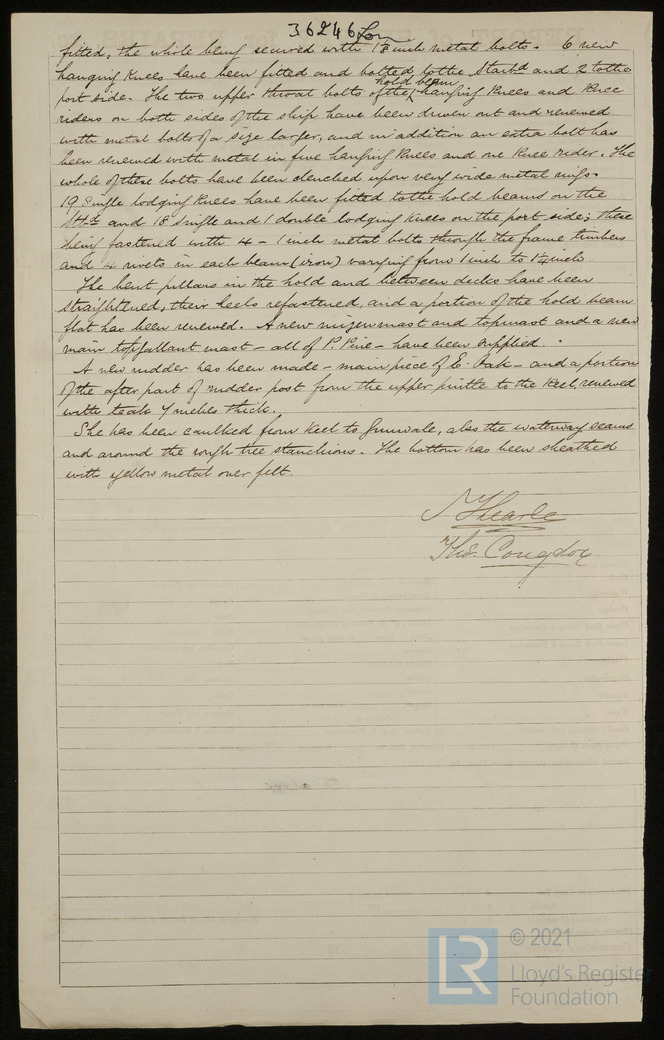 36246 Lon
fitted, the whole being secured with 1 1/8 inch metal bolts. 6 new
hanging knees have been fitted and bolted to the Starbd and 2 to the
hold beam
port side. The two upper throat bolts of the hanging knees and knee
riders on both sides of the ship have been driven out and renewed
with metal bolts of a size larger, and in addition an extra bolt has
been renewed with metal in five hanging knees and one knee rider. The
whole of these bolts have been clenched upon very wide metal rings.
19 Single lodging knees have been fitted to the hold beams on the
Stbd and 18 single and 1 double lodging knees on the port side; these
being fastened with 4 - 1 inch metal bolts through the frame timbers
and 4 rivets in each beam (iron) varying from 1 inch to 1 1/4 inch.
The bent pillars in the hold and between decks have been
straightened, their heels refastened, and a portion of the hold beam
flat has been renewed. A new mizenmast and topmast and a new
main topgallant mast - all of P. Pine - have been supplied.
A new rudder has been made - main piece of E. Oak - and a portion
of the after part of rudder post from the upper pintle to the keel, renewed
with teak 7 inches thick.
She has been caulked from keel to gunwale, also the waterway seams
and around the rough tree stanchions. The bottom has been sheathed
with yellow metal over felt.
Thos. Congdon
LR
© 2021
Lloyd's Register
Foundation